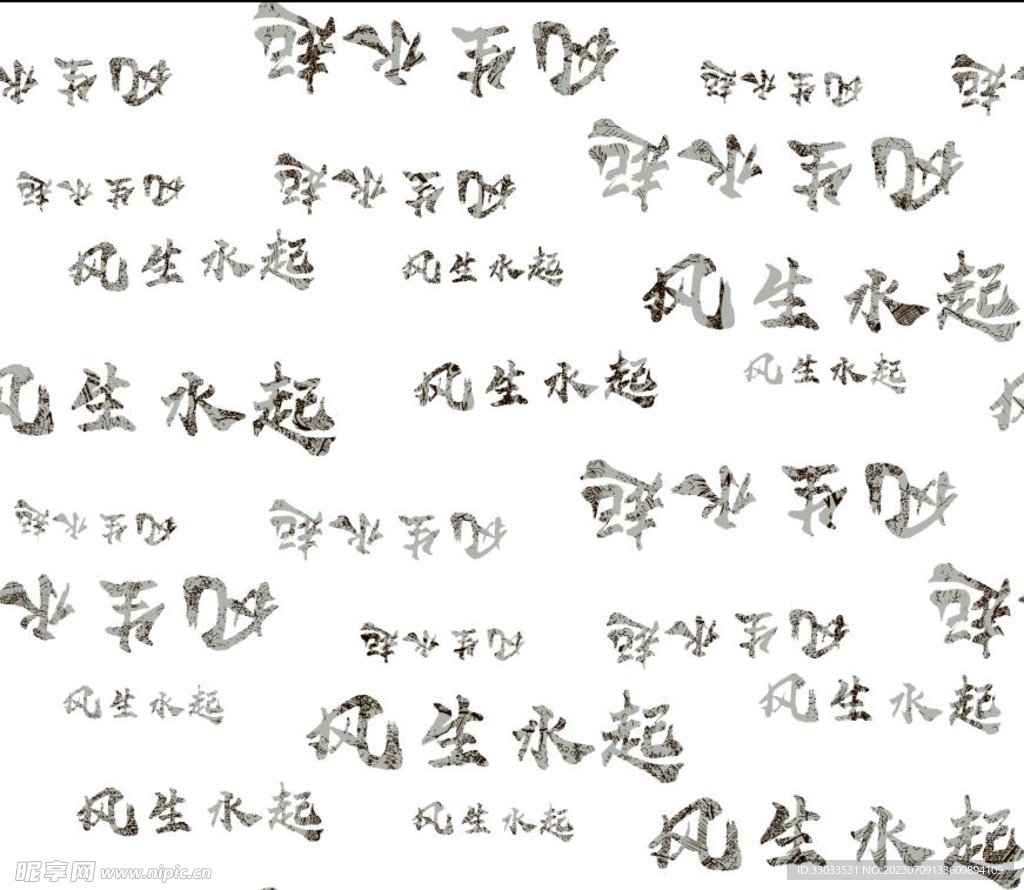 风生水起
风生水
风生水起
起
风生水起
风生水起
风生水起
风生水起
风生水起
风生水起
风生水起
风生水起
风生水起
风
风生水起
风生水起
风生水起
风生水
风生水起
风生水起
起
风生水起
风生水起
风生水起
风生水起
风生水起
风生水起
昵享网 www.nipic.cn
ID:33033531 NO:20230709133609894109